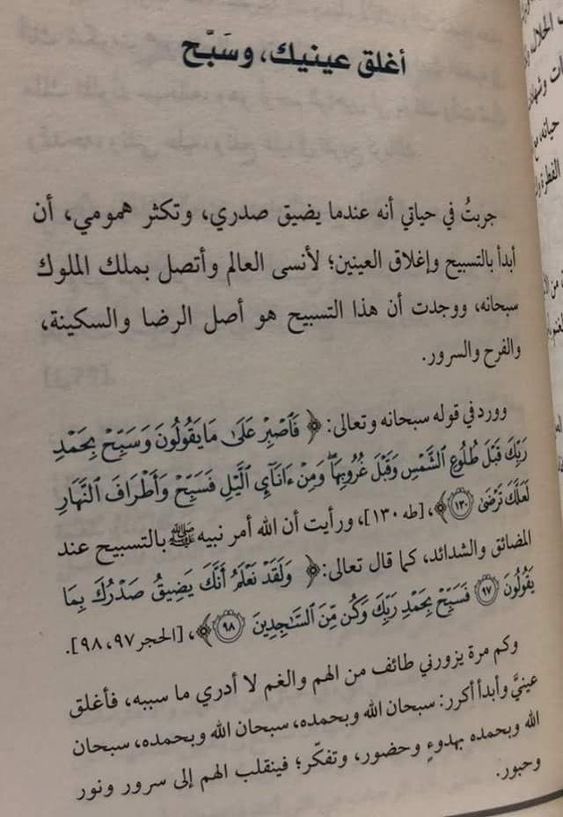 أغلق عينيك، وسَبِّح
جربتُ في حياتي أنه عندما يضيق صدري، وتكثر همومي، أن
أبدأ بالتسبيح وإغلاق العينين؛ لأنسى العالم وأتصل بملك الملوك
سبحانه، ووجدت أن هذا التسبيح هو أصل الرضا والسكينة،
والفرح والسرور.
وورد في قوله سبحانه وتعالى: ﴿ فَٱصْبِرْ عَلَىٰ مَا يَقُولُونَ وَسَبِّحْ بِحَمْدِ
رَبِّكَ قَبْلَ طُلُوعِ ٱلشَّمْسِ وَقَبْلَ غُرُوبِهَا ۖ وَمِنْ ءَانَآئِ ٱلَّيْلِ فَسَبِّحْ وَأَطْرَافَ ٱلنَّهَارِ
لَعَلَّكَ تَرْضَىٰ ١٣٠ ﴾، [طه ١٣٠]، ورأيت أن الله أمر نبيه ﷺ بالتسبيح عند
المضائق والشدائد، كما قال تعالى: ﴿ وَلَقَدْ نَعْلَمُ أَنَّكَ يَضِيقُ صَدْرُكَ بِمَا
يَقُولُونَ ٩٧ فَسَبِّحْ بِحَمْدِ رَبِّكَ وَكُن مِّنَ ٱلسَّٰجِدِينَ ٩٨ ﴾، [الحجر ٩٧، ٩٨].
وكم مرة يزورني طائف من الهم والغم لا أدري ما سببه، فأغلق
عينيَّ وأبدأ أكرر: سبحان الله وبحمده، سبحان الله وبحمده، سبحان
الله وبحمده بهدوءٍ وحضور، وتفكّر؛ فينقلب الهم إلى سرور ونور
وحبور.